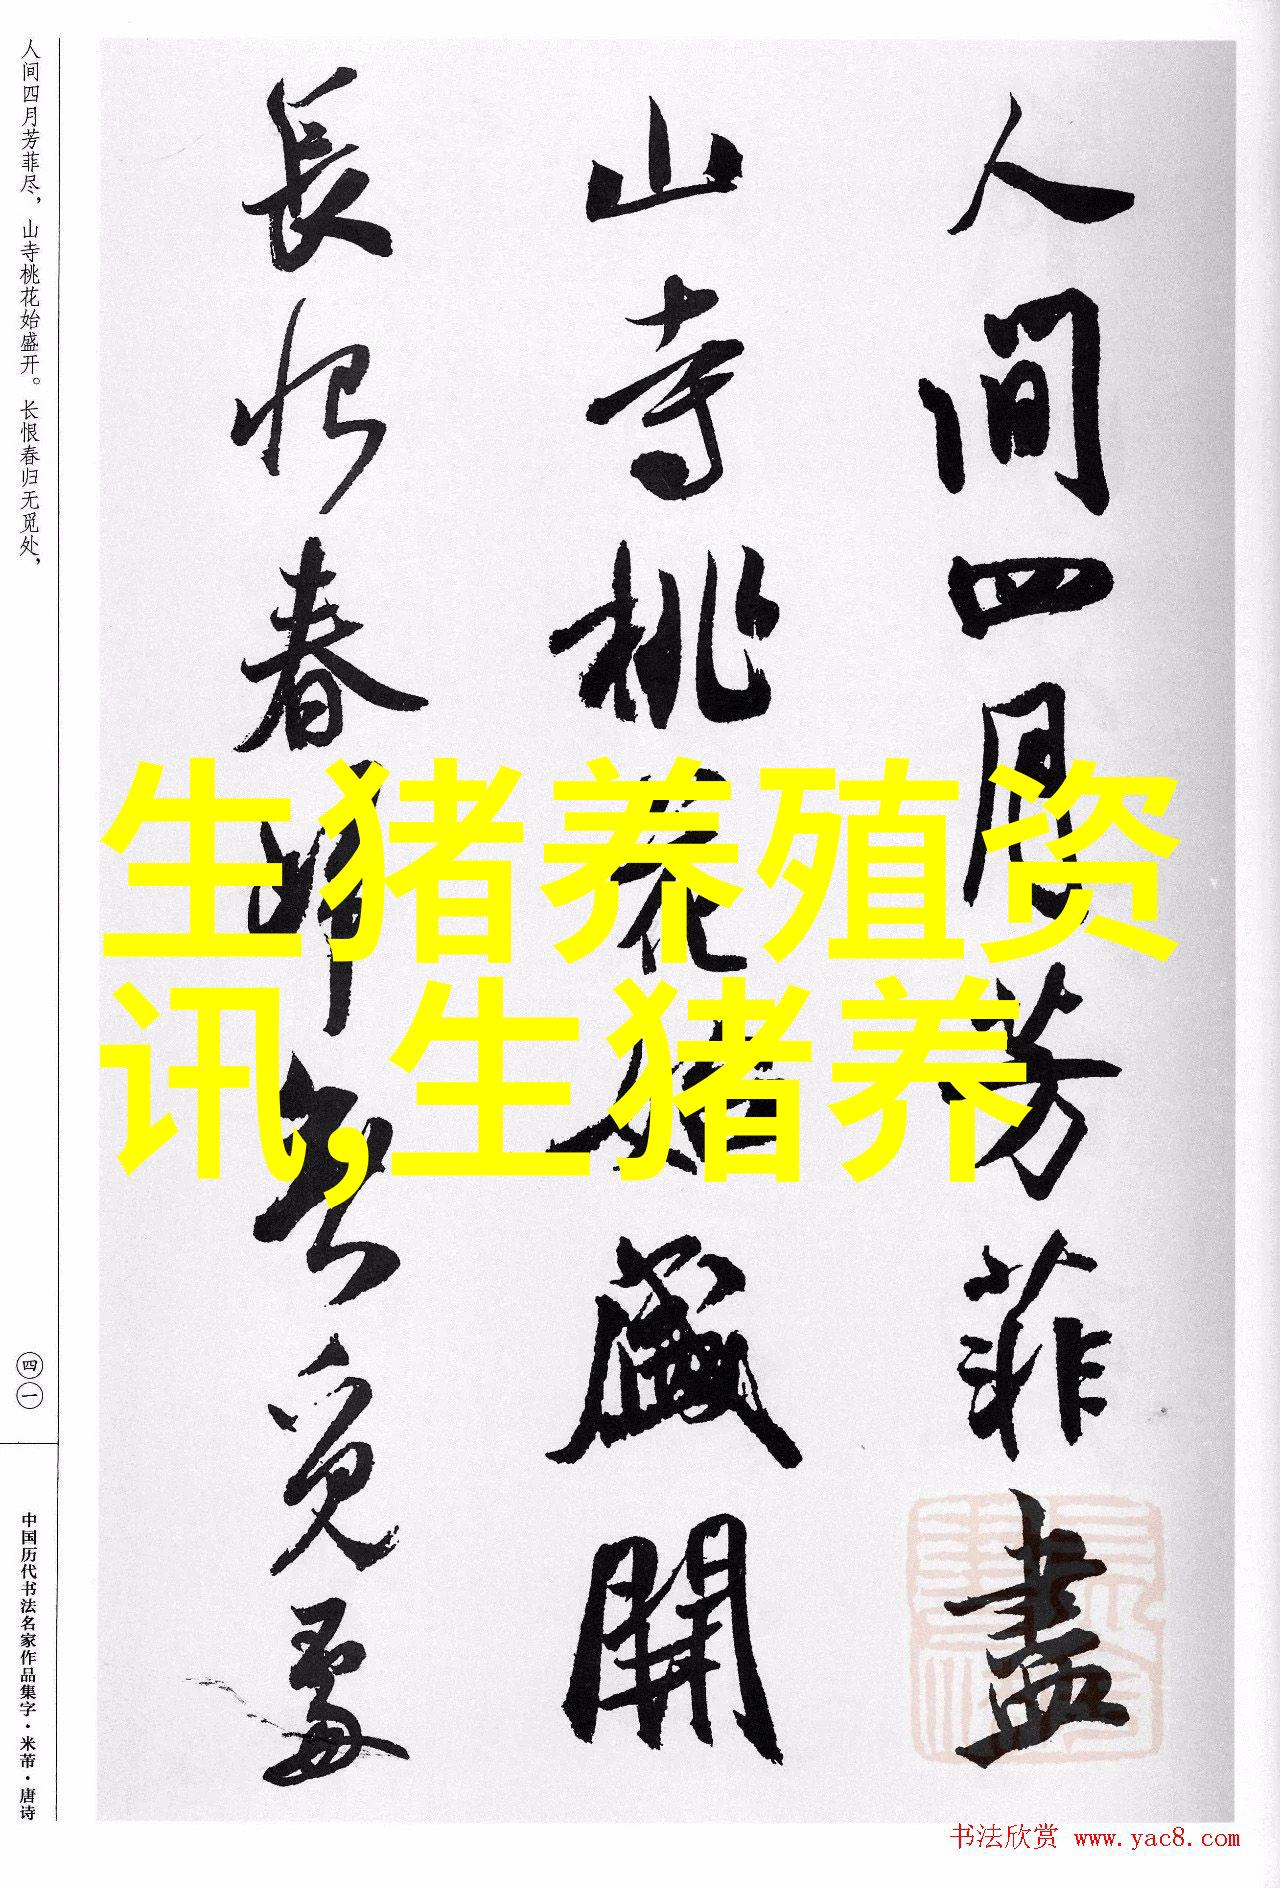 人間四月芳菲盡
山寺桃花始盛開
長恨春歸無覓處
生猪养殖资
讯,生猪养
人间四月芳菲尽，山寺桃花始盛开。长恨春归无觅处，
四一
中国历代书法名家作品集字·米芾·唐诗
书法欣赏 www.yac8.com